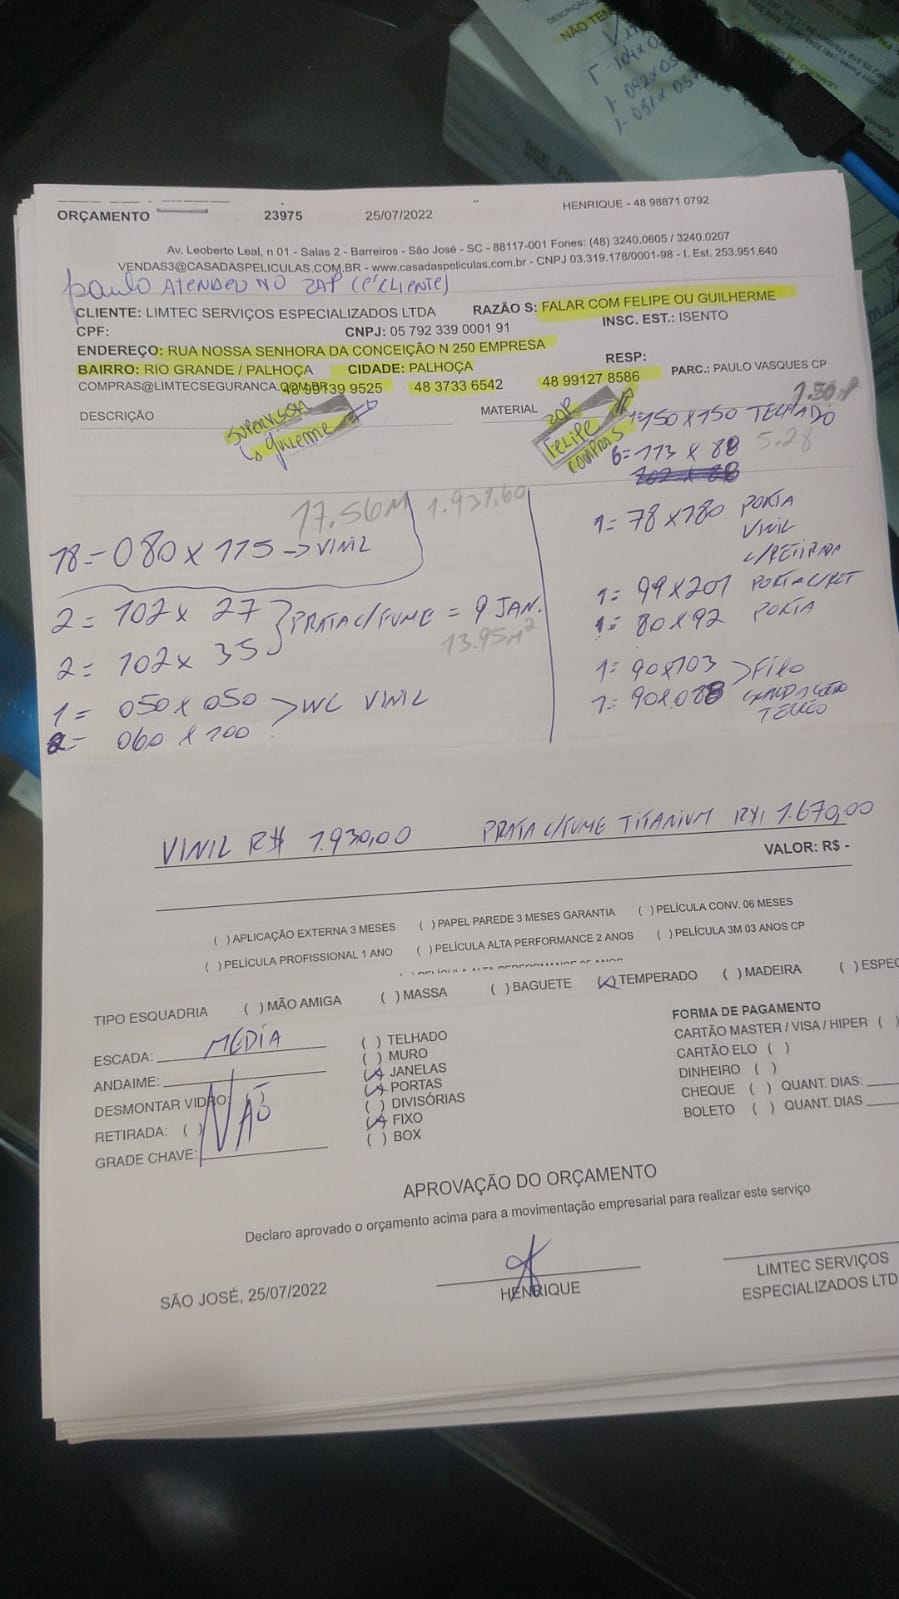 ORÇAMENTO 23975 25/07/2022 HENRIQUE - 48 98871 0792
Av. Leoberto Leal, n 01 - Salas 2 - Barreiros - São José - SC - 88117-001 Fones: (48) 3240.0605 / 3240.0207
VENDAS3@CASADASPELICULAS.COM.BR - www.casadaspeliculas.com.br - CNPJ 03.319.178/0001-98 - I. Est. 253.951.640
paulo ATENDEU NO ZAP (É CLIENTE)
CLIENTE: LIMTEC SERVIÇOS ESPECIALIZADOS LTDA RAZÃO S: FALAR COM FELIPE OU GUILHERME
CPF: CNPJ: 05 792 339 0001 91 INSC. EST.: ISENTO
ENDEREÇO: RUA NOSSA SENHORA DA CONCEIÇÃO N 250 EMPRESA
BAIRRO: RIO GRANDE / PALHOÇA CIDADE: PALHOÇA RESP: PARC.: PAULO VASQUES CP
COMPRAS@LIMTECSEGURANCA.COM.BR 48 99139 9525 48 3733 6542 48 99127 8586
DESCRIÇÃO MATERIAL
SUPERVISOR
guilherme
ZAP
FELIPE
COMPRAS
1=150X150 TELHADO
6=113 X 88 5.28
102 X 88
17.56M 1.931,60
18=080 X 115 -> VINIL
2= 102 X 27
2= 102 X 35
PRATA C/FUME = 9 JAN.
13.95M²
1= 050 X 050 > WC VINIL
2= 060 X 100
1= 78 X 180 PORTA
VINIL
C/RETIRADA
1= 99 X 201 PORTA C/RET
1= 80 X 92 PORTA
1= 90X103 > FIXO
1= 90X088
VINIL R$ 1.930,00 PRATA C/FUME TITANIUM R$ 1.670,00
VALOR: R$ -
( ) APLICAÇÃO EXTERNA 3 MESES ( ) PAPEL PAREDE 3 MESES GARANTIA ( ) PELÍCULA CONV. 06 MESES
( ) PELÍCULA PROFISSIONAL 1 ANO ( ) PELÍCULA ALTA PERFORMANCE 2 ANOS ( ) PELÍCULA 3M 03 ANOS CP
TIPO ESQUADRIA ( ) MÃO AMIGA ( ) MASSA ( ) BAGUETE (X) TEMPERADO ( ) MADEIRA ( ) ESPEC
FORMA DE PAGAMENTO
ESCADA: MEDIA
ANDAIME:
DESMONTAR VIDRO:
RETIRADA: ( )
GRADE CHAVE:
NÃO
( ) TELHADO
( ) MURO
(X) JANELAS
(X) PORTAS
( ) DIVISÓRIAS
(X) FIXO
( ) BOX
CARTÃO MASTER / VISA / HIPER ( )
CARTÃO ELO ( )
DINHEIRO ( )
CHEQUE ( ) QUANT. DIAS:
BOLETO ( ) QUANT. DIAS
APROVAÇÃO DO ORÇAMENTO
Declaro aprovado o orçamento acima para a movimentação empresarial para realizar este serviço
SÃO JOSÉ, 25/07/2022
HENRIQUE
LIMTEC SERVIÇOS
ESPECIALIZADOS LTD